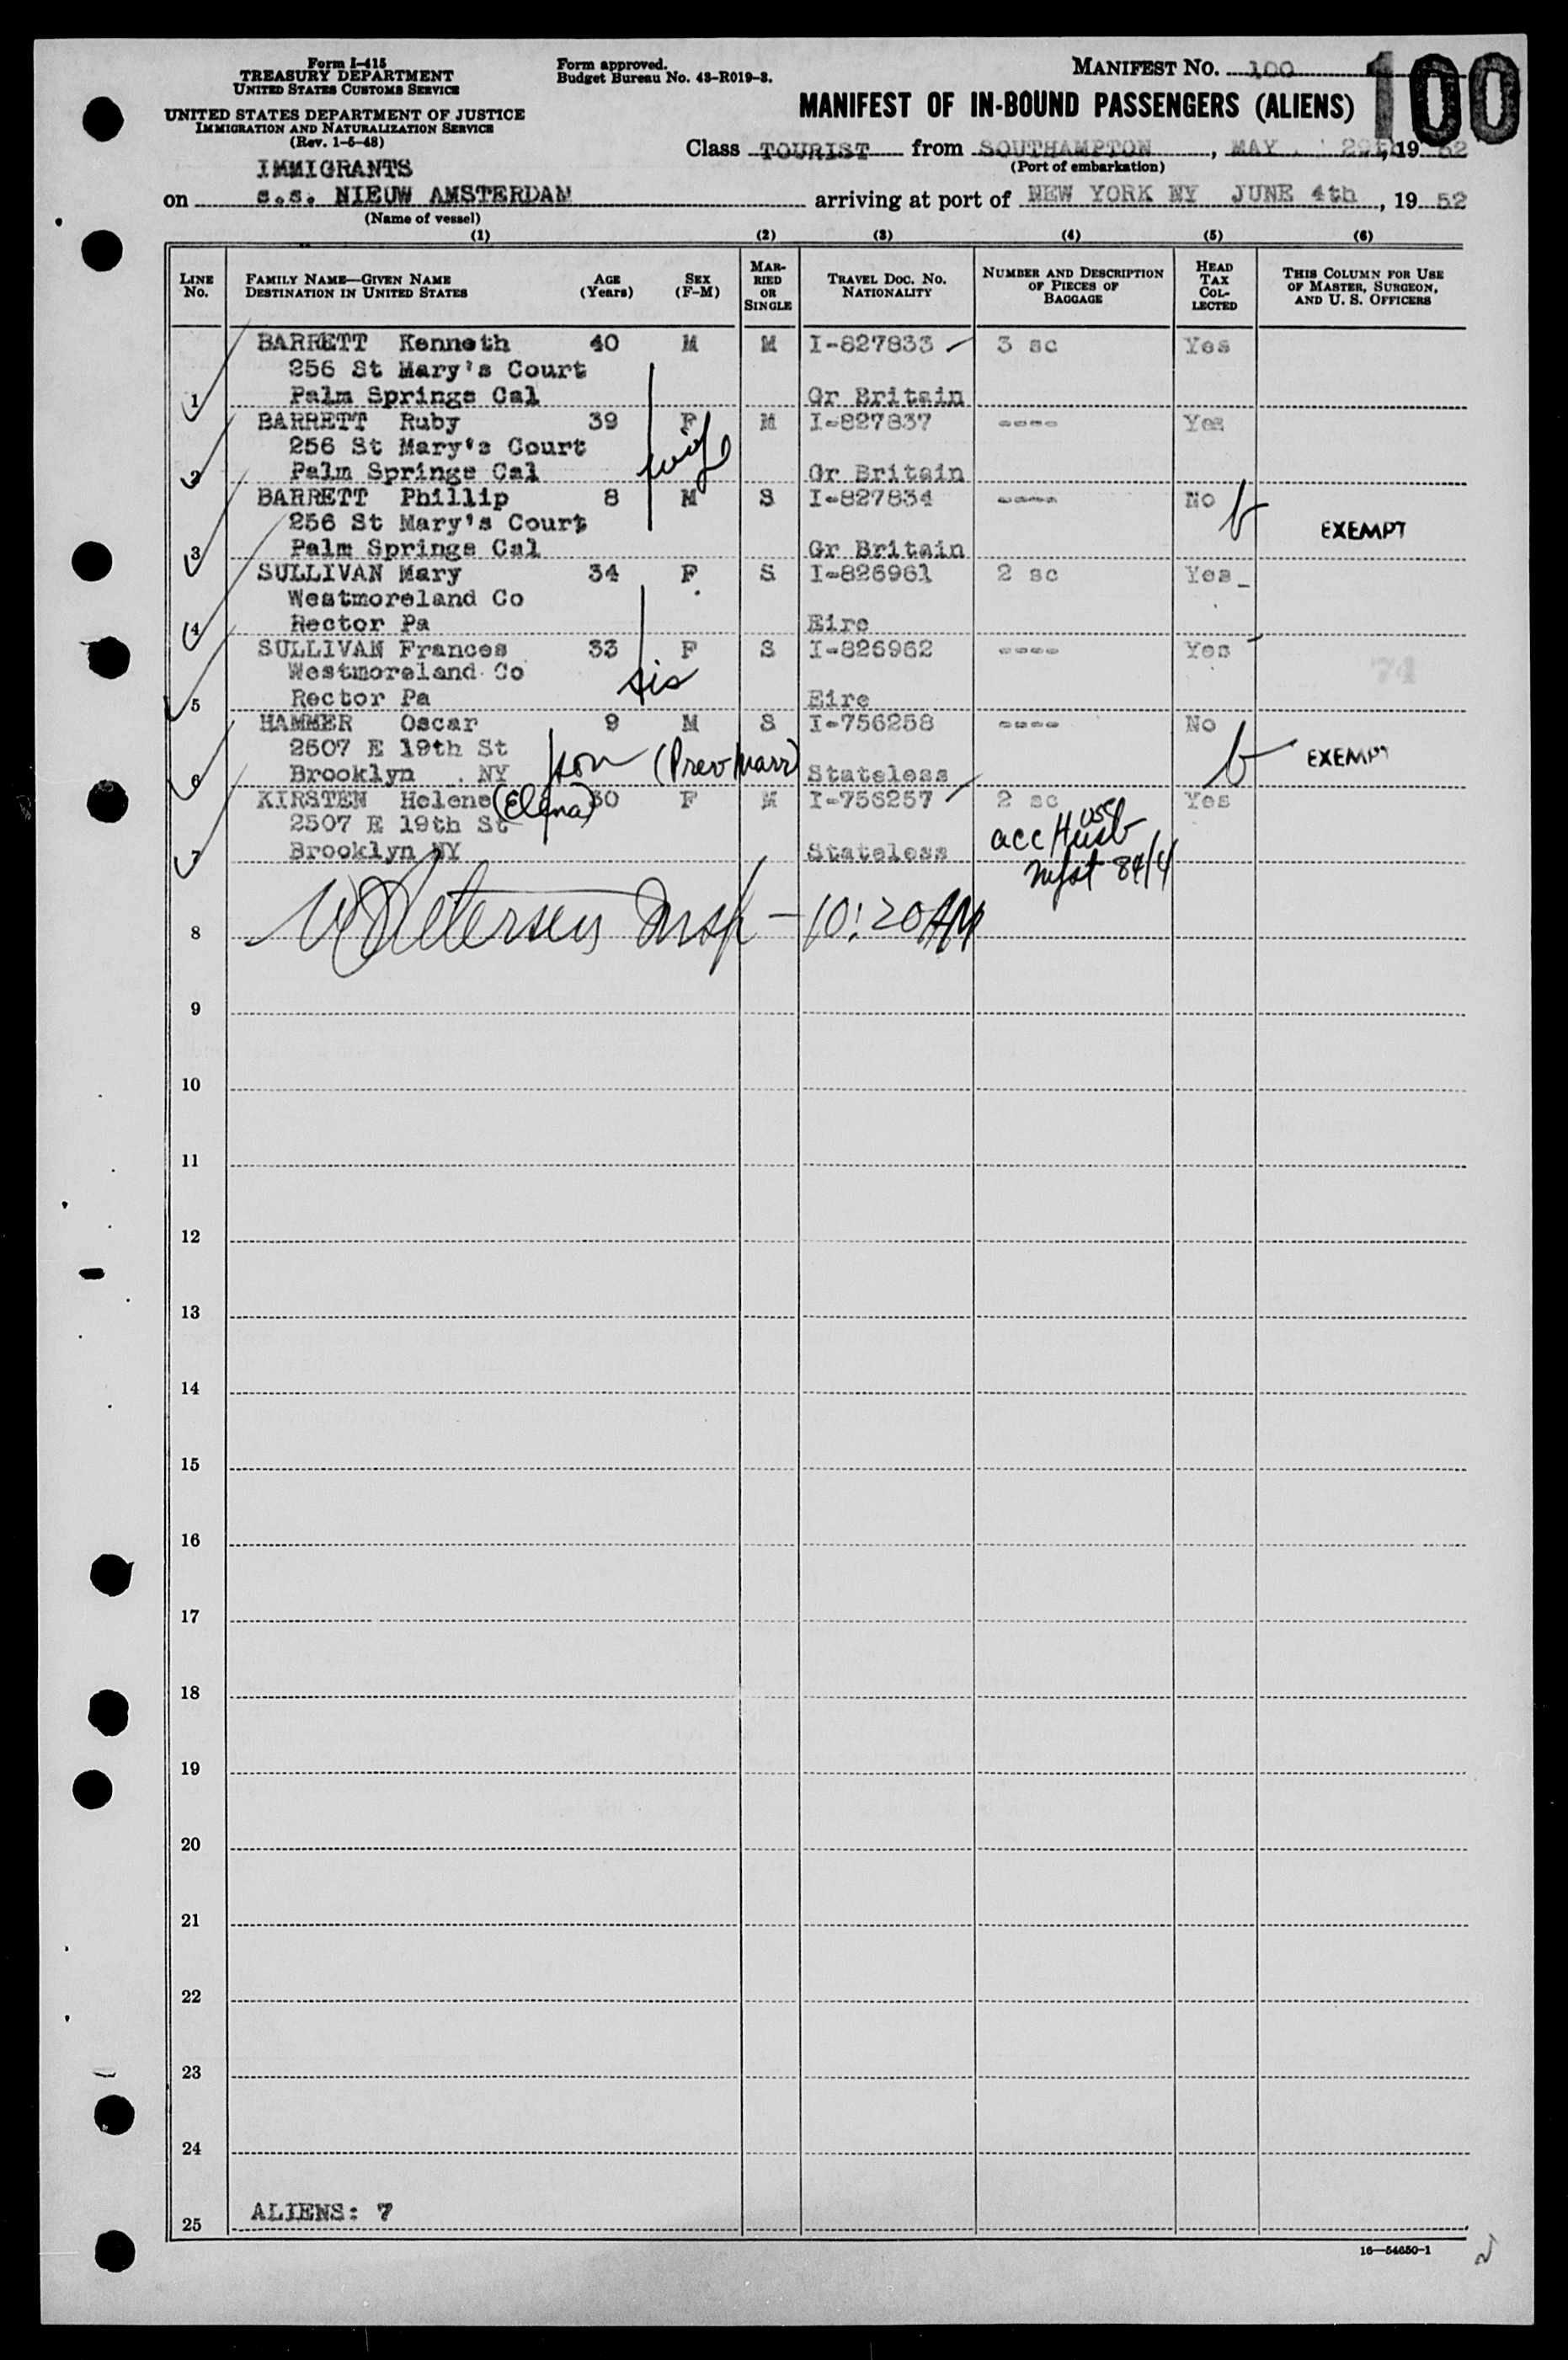 Form I-415
TREASURY DEPARTMENT
UNITED STATES CUSTOMS SERVICE
UNITED STATES DEPARTMENT OF JUSTICE
IMMIGRATION AND NATURALIZATION SERVICE
(Rev. 1-5-48)
Form approved.
Budget Bureau No. 43-R019-3.
MANIFEST NO. 100
100
MANIFEST OF IN-BOUND PASSENGERS (ALIENS)
Class TOURIST from SOUTHAMPTON, MAY 29th, 1952
(Port of embarkation)
IMMIGRANTS
on s.s. NIEUW AMSTERDAM arriving at port of NEW YORK NY JUNE 4th, 1952
(Name of vessel)
(1) (2) (3) (4) (5) (6)
LINE NO. FAMILY NAME—GIVEN NAME DESTINATION IN UNITED STATES AGE (Years) SEX (F-M) MARRIED OR SINGLE TRAVEL DOC. NO. NATIONALITY NUMBER AND DESCRIPTION OF PIECES OF BAGGAGE HEAD TAX COLLECTED THIS COLUMN FOR USE OF MASTER, SURGEON, AND U. S. OFFICERS
BARRETT Kenneth 40 M M I-827833 3 sc Yes
256 St Mary's Court
1 Palm Springs Cal Gr Britain
BARRETT Ruby 39 F M I-827837 ---- Yes
256 St Mary's Court wife
2 Palm Springs Cal Gr Britain
BARRETT Phillip 8 M S I-827834 ---- No b EXEMPT
256 St Mary's Court
3 Palm Springs Cal Gr Britain
SULLIVAN Mary 34 F S I-826961 2 sc Yes
Westmoreland Co
4 Rector Pa Eire
SULLIVAN Frances 33 F S I-826962 ---- Yes
Westmoreland Co sis 74
5 Rector Pa Eire
HAMMER Oscar 9 M S I-756258 ---- No b EXEMPT
2507 E 19th St son (Prev Marr)
6 Brooklyn . NY Stateless
KIRSTEN Helene (Elena) 30 F M I-756257 2 sc Yes
2507 E 19th St acc USC Husb
7 Brooklyn NY Stateless mfst 84/4
8 Petersen Insp - 10:20 AM
9
10
11
12
13
14
15
16
17
18
19
20
21
22
23
24
25 ALIENS: 7
16—54650-1